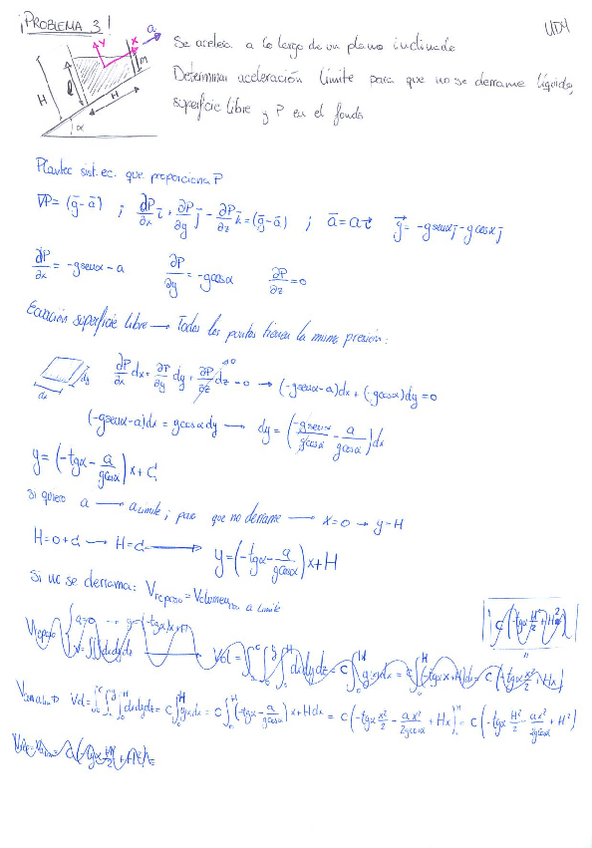 ¡PROBLEMA 3!
UD4
a
y
x
l
H
M
H
α
Se acelera a lo largo de un plano inclinado
Determinar aceleración límite para que no se derrame líquido,
superficie libre y P en el fondo
Plantec sist. ec. que proporciona P
∇P = (g̅ - a̅) ; ∂P/∂x i̅ + ∂P/∂y j̅ - ∂P/∂z k̅ = (g̅ - a̅) ; a̅ = a i̅ g⃗ = -gsenα j - gcosα j
∂P/∂x = -gsenα - a ∂P/∂y = -gcosα ∂P/∂z = 0
Ecuación superficie libre → Todos los puntos tienen la misma presión:
dx dy ∂P/∂x dx + ∂P/∂y dy + ∂P/∂z dz = 0 → (-gsenα-a)dx + (-gcosα)dy = 0
(-gsenα-a)dx = gcosα dy → dy = (-gsenα/gcosα - a/gcosα) dx
y = (-tgα - a/gcosα) x + C
Si quiero a → a límite ; para que no derrame → x=0 → y=H
H = 0 + C → H = C → y = (-tgα - a/gcosα) x + H
Si no se derrama: V reposo = Volumen a límite
Vol = ∫∫∫ dxdydz = C ∫ y·dx =
Vol = ∫∫∫ dxdydz = C ∫ y dx = C ∫ (-tgα - a/gcosα) x + H dx = C (-tgα x²/2 - ax²/2gcosα + Hx) = C (-tgα H²/2 - ax²/2gcosα + H²)